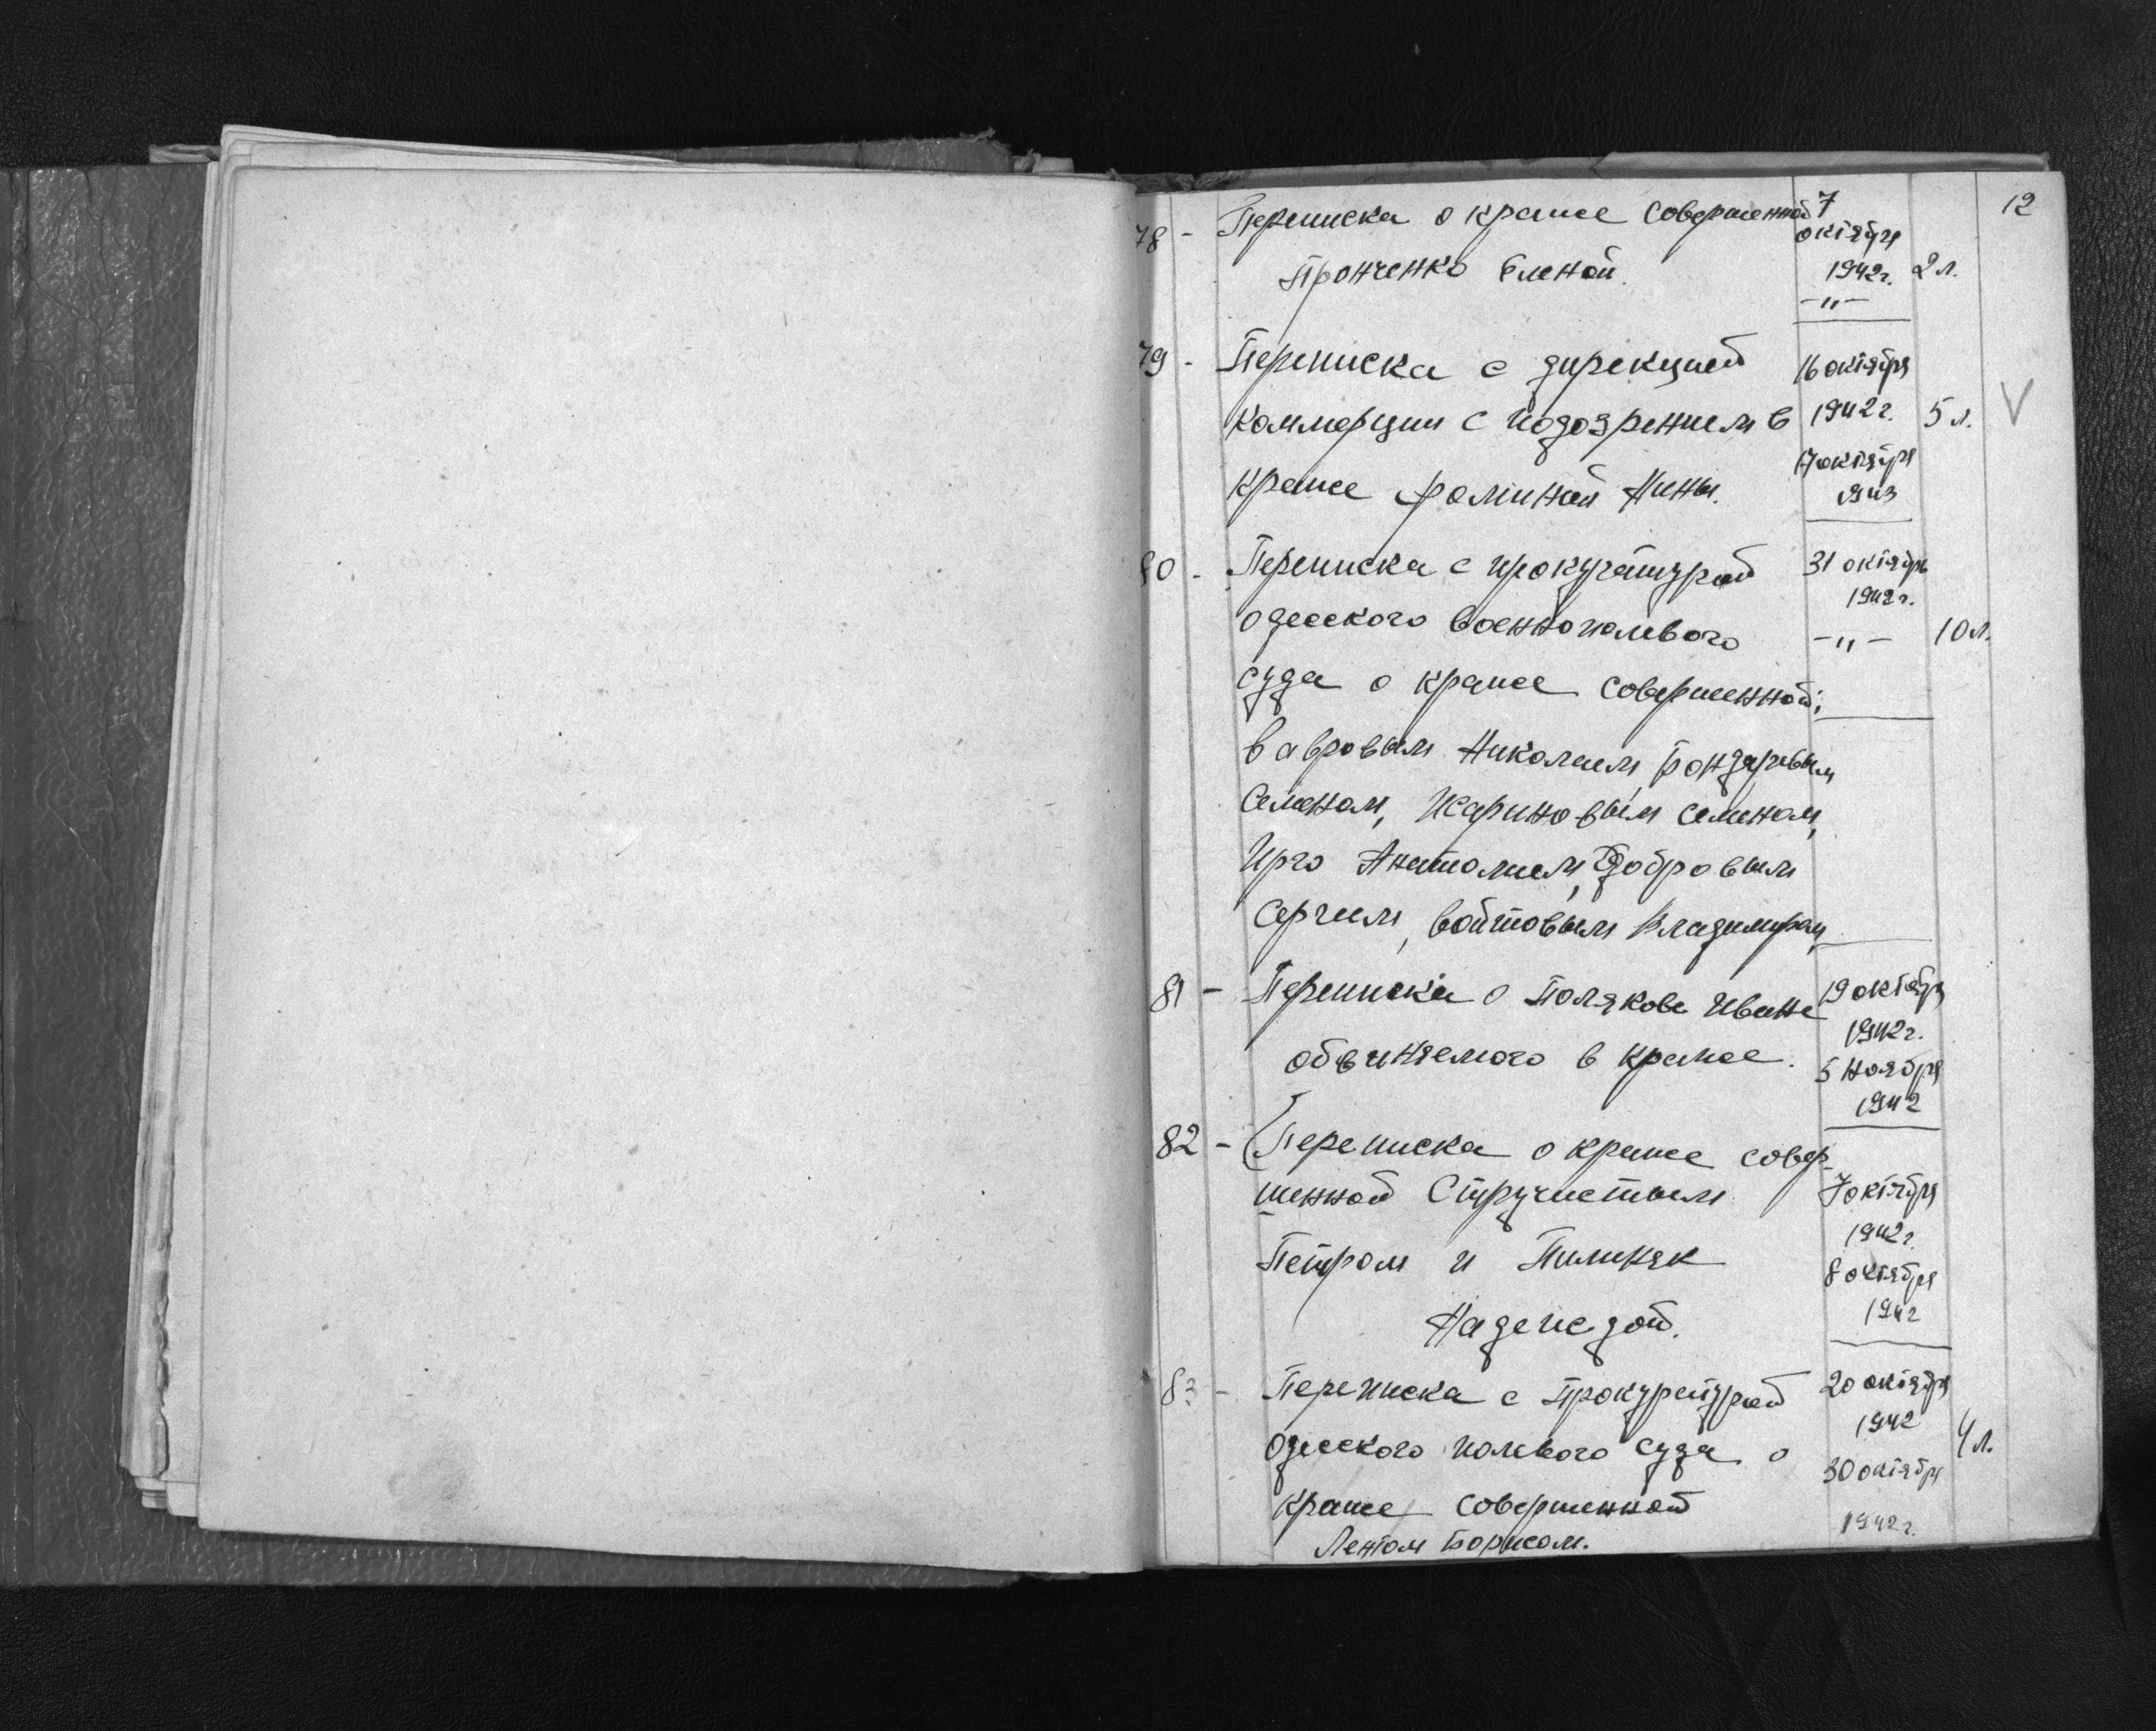 12
78 - Переписка о краже совершенной 7 октября
Пронченко Еленой. 1942г. 2л.
-"-
79 - Переписка с дирекцией 16 октября
коммерции с подозрением в 1942г. 5л. V
краже Фоминой Нины. 17 октября 1943
80 - Переписка с прокуратурой 31 октября 1942г.
одесского военнополевого -"- 10л.
суда о краже совершенной:
Вавровым Николаем, Бондаревым
Семеном, Жариновым Семеном,
Ирго Анатолием, Добровым
Сергеем, Войтовым Владимиром
81 - Переписка о Полякове Иване 19 октября 1942г.
обвиняемого в краже. 5 ноября 1942
82 - Переписка о краже совер-
шенной Стручистым 7 октября
Петром и Пилиняк 1942г. 8 октября
Надеждой. 1942
83 - Переписка с Прокуратурой 20 октября
одесского полевого суда о 1942 4л.
краже совершенной 30 октября
Лентом Борисом. 1942г.